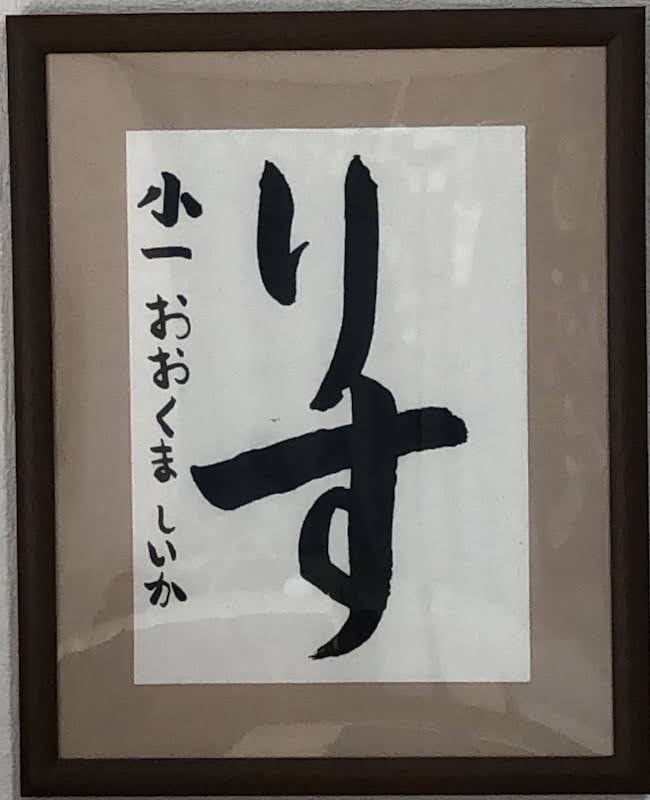 りす
小一 おおくま しいか